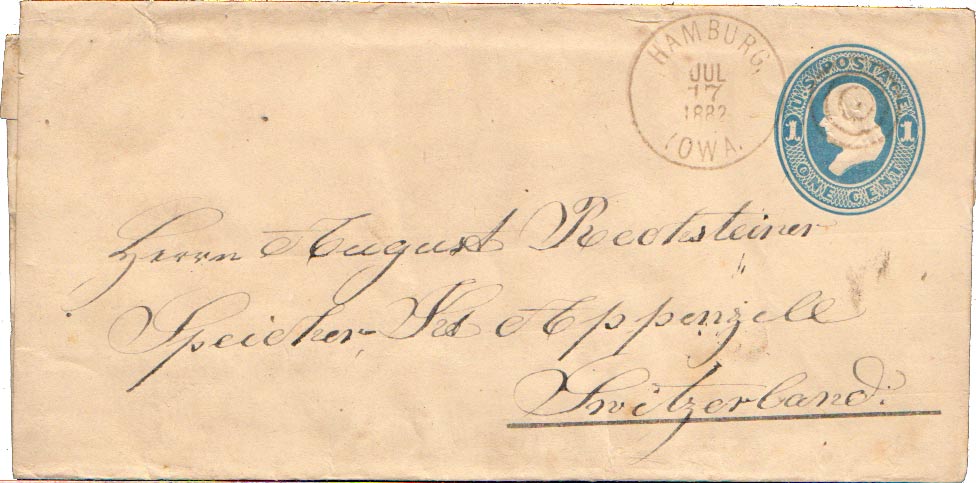 HAMBURG,
JUL
17
1882
IOWA.
U.S. POSTAGE
1 1
ONE CENT
Herrn August Rechsteiner
Speicher Kt Appenzell
Switzerland.